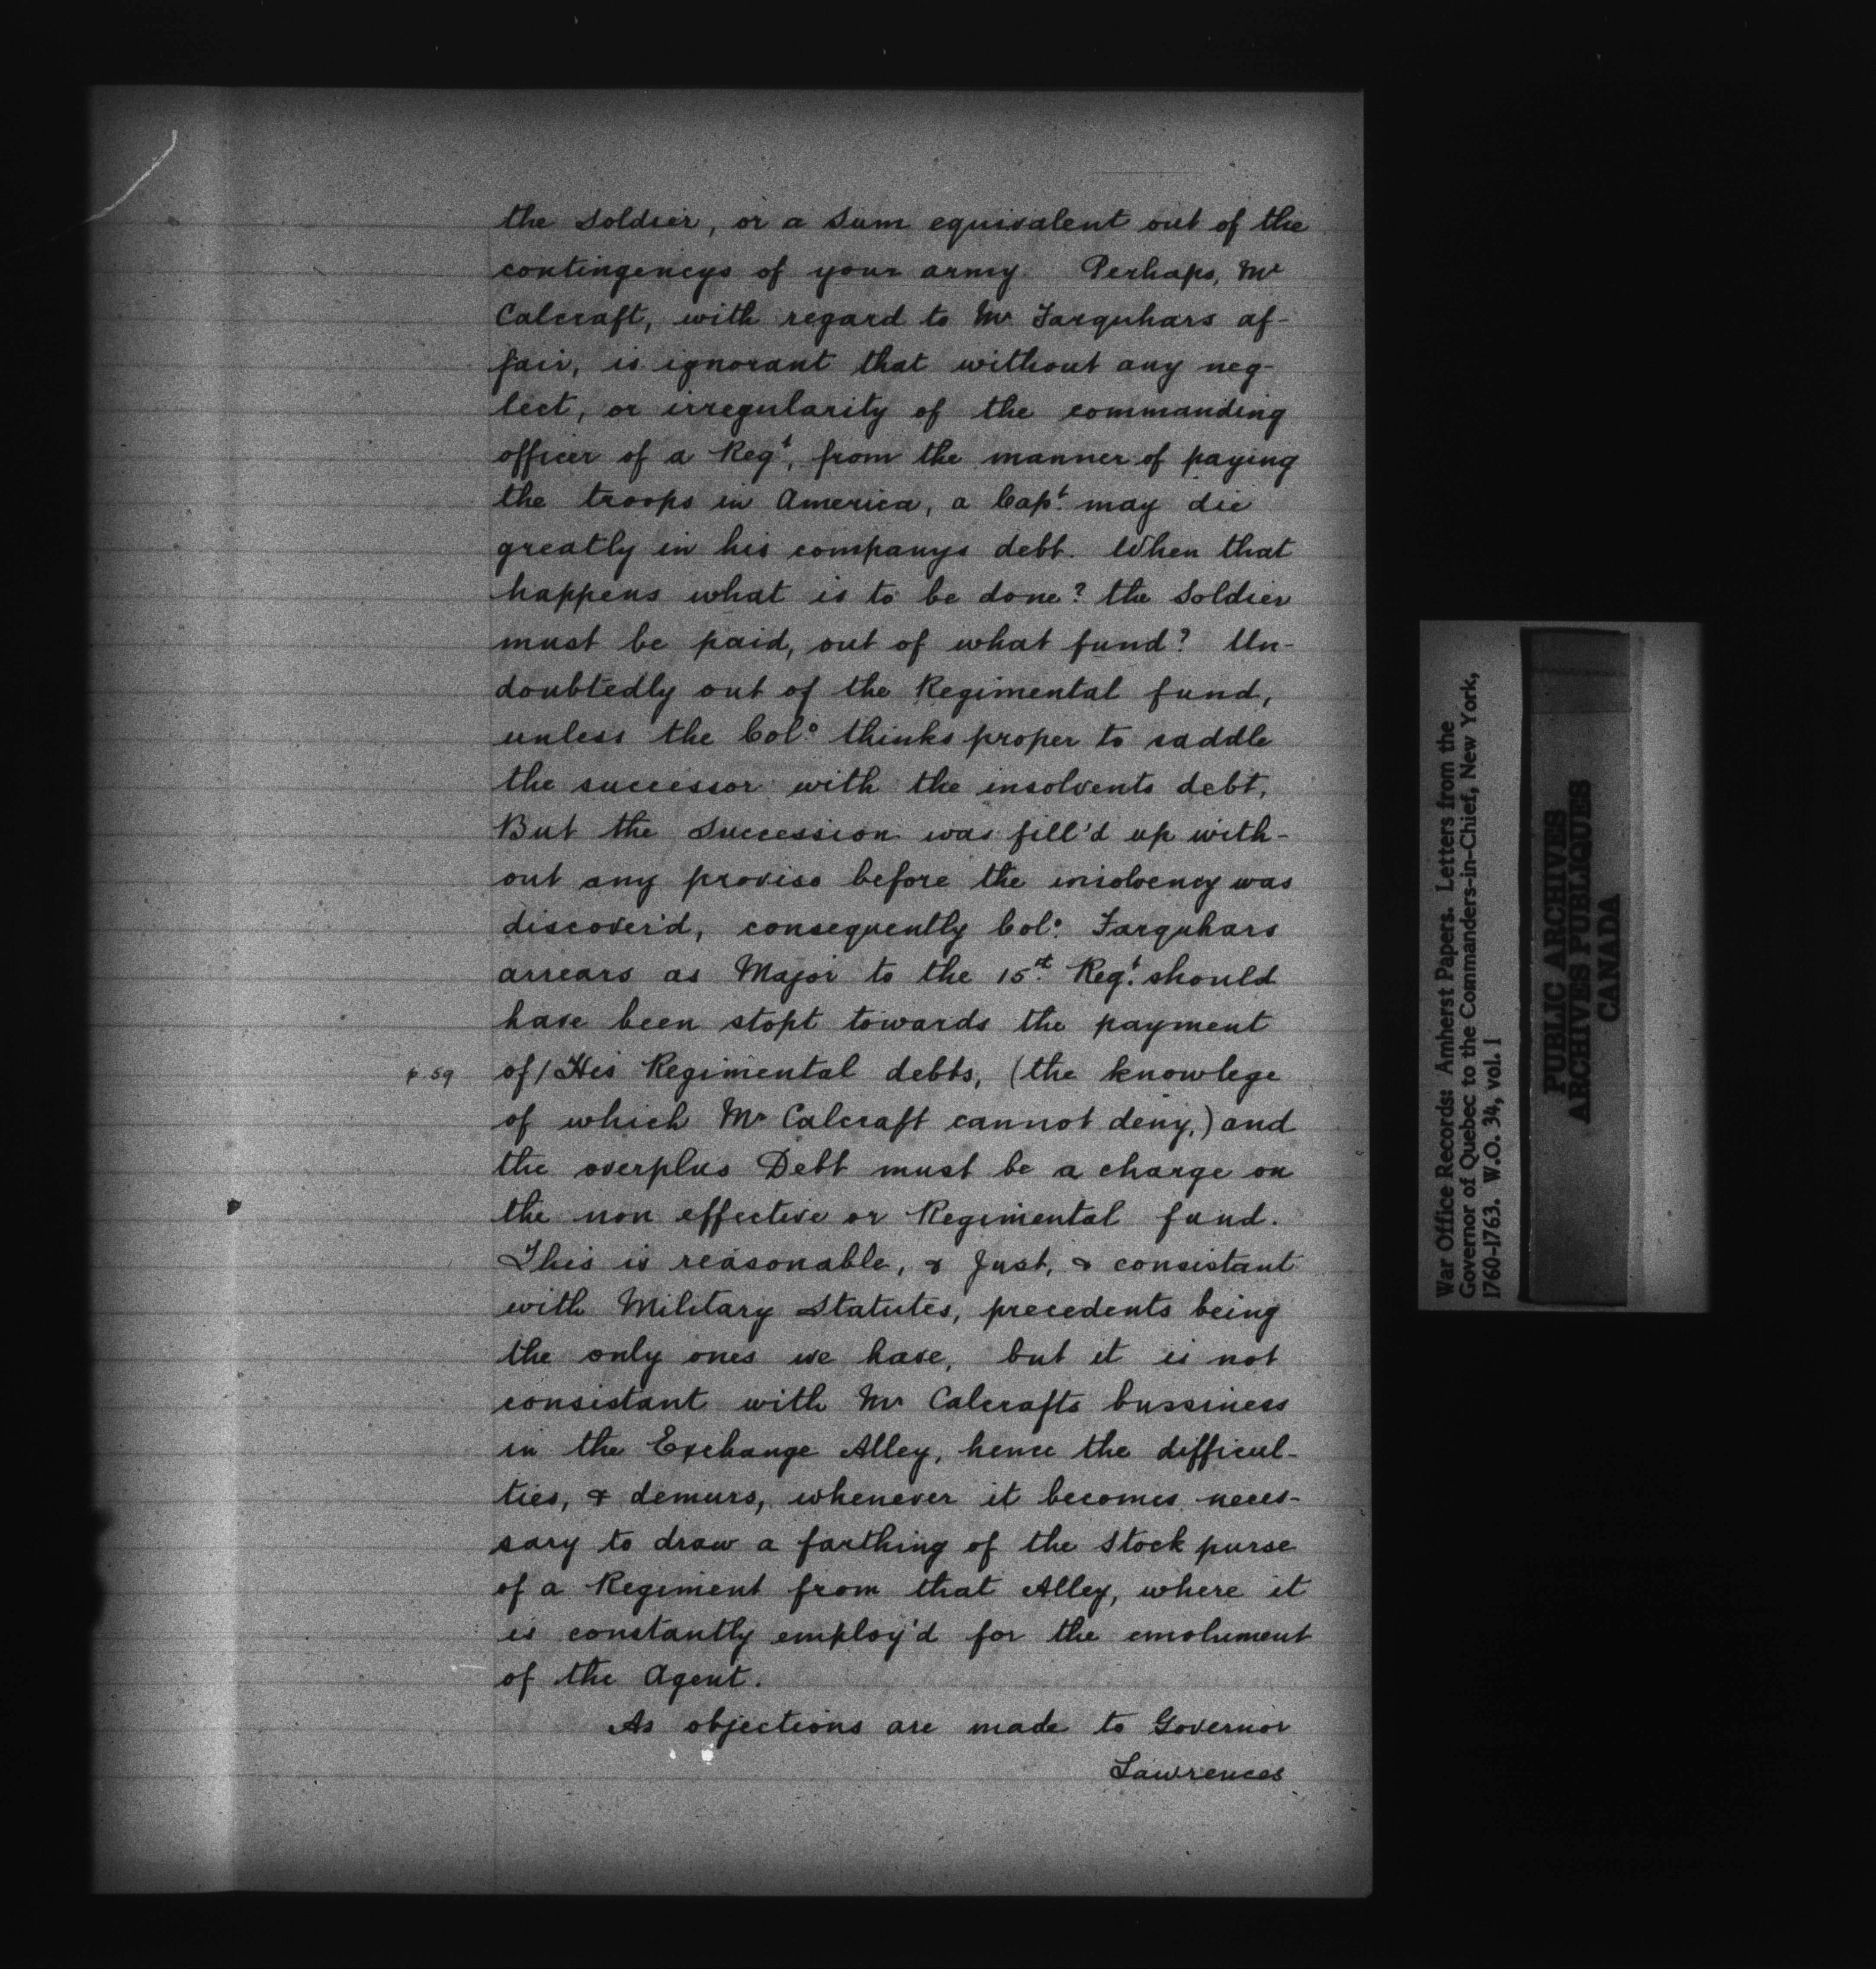 the Soldier, or a Sum equivalent out of the
contingencys of your army. Perhaps, Mr
Calcraft, with regard to Mr Farquhars af-
fair, is ignorant that without any neg-
lect, or irregularity of the commanding
officer of a Regt, from the manner of paying
the troops in America, a Capt. may die
greatly in his companys debt. When that
happens what is to be done? the Soldier
must be paid, out of what fund? Un-
doubtedly out of the Regimental fund,
unless the Colo. thinks proper to saddle
the successor with the insolvents debt,
But the Succession was fill'd up with-
out any proviso before the insolvency was
discover'd, consequently Colo. Farquhars
arrears as Major to the 15st. Regt. should
have been stopt towards the payment
p. 59 of / His Regimental debts, (the knowlege
of which Mr Calcraft cannot deny,) and
the overplus Debt must be a charge on
the non effective or Regimental fund.
This is reasonable, & Just, & consistant
with Military Statutes, precedents being
the only ones we have, but it is not
consistant with Mr Calcrafts bussiness
in the Exchange Alley, hence the difficul-
ties, & demurs, whenever it becomes neces-
sary to draw a farthing of the Stock purse
of a Regiment from that Alley, where it
is constantly employ'd for the emolument
of the Agent.
As objections are made to Governor
Lawrences
War Office Records: Amherst Papers. Letters from the
Governor of Quebec to the Commanders-in-Chief, New York,
1760-1763. W.O. 34, vol. 1
PUBLIC ARCHIVES
ARCHIVES PUBLIQUES
CANADA